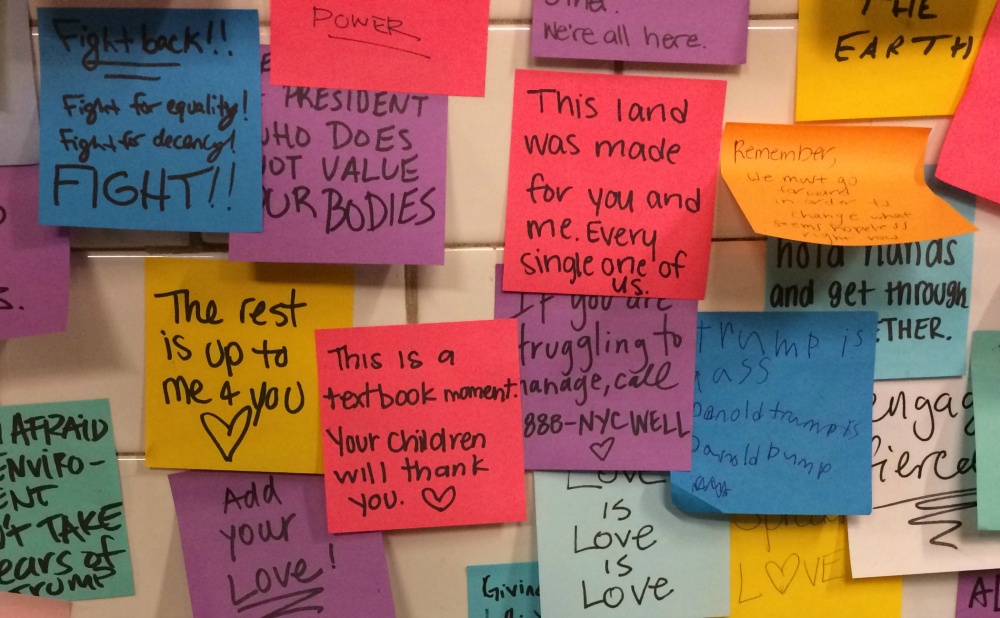 Fight back!!
Fight for equality!
Fight for decency!
FIGHT!!
POWER
PRESIDENT
WHO DOES
NOT VALUE
OUR BODIES
We're all here.
THE
EARTH
This land
was made
for you and
me. Every
single one of
us.
Remember,
we must go
forward
in order to
change what
seems hopeless
right now
hold hands
and get through
ETHER.
The rest
is up to
me & you
This is a
textbook moment.
Your children
will thank
you.
If you are
struggling to
manage, call
888-NYC WELL
Trump is
ass
Danold trump is
Danold Dump
AFRAID
ENVIRO-
ENT
TAKE
ears of
TRUMP
Add
your
Love!
Love
is
Love
is
Love
Spread
LOVE
engag
fierce
Giving